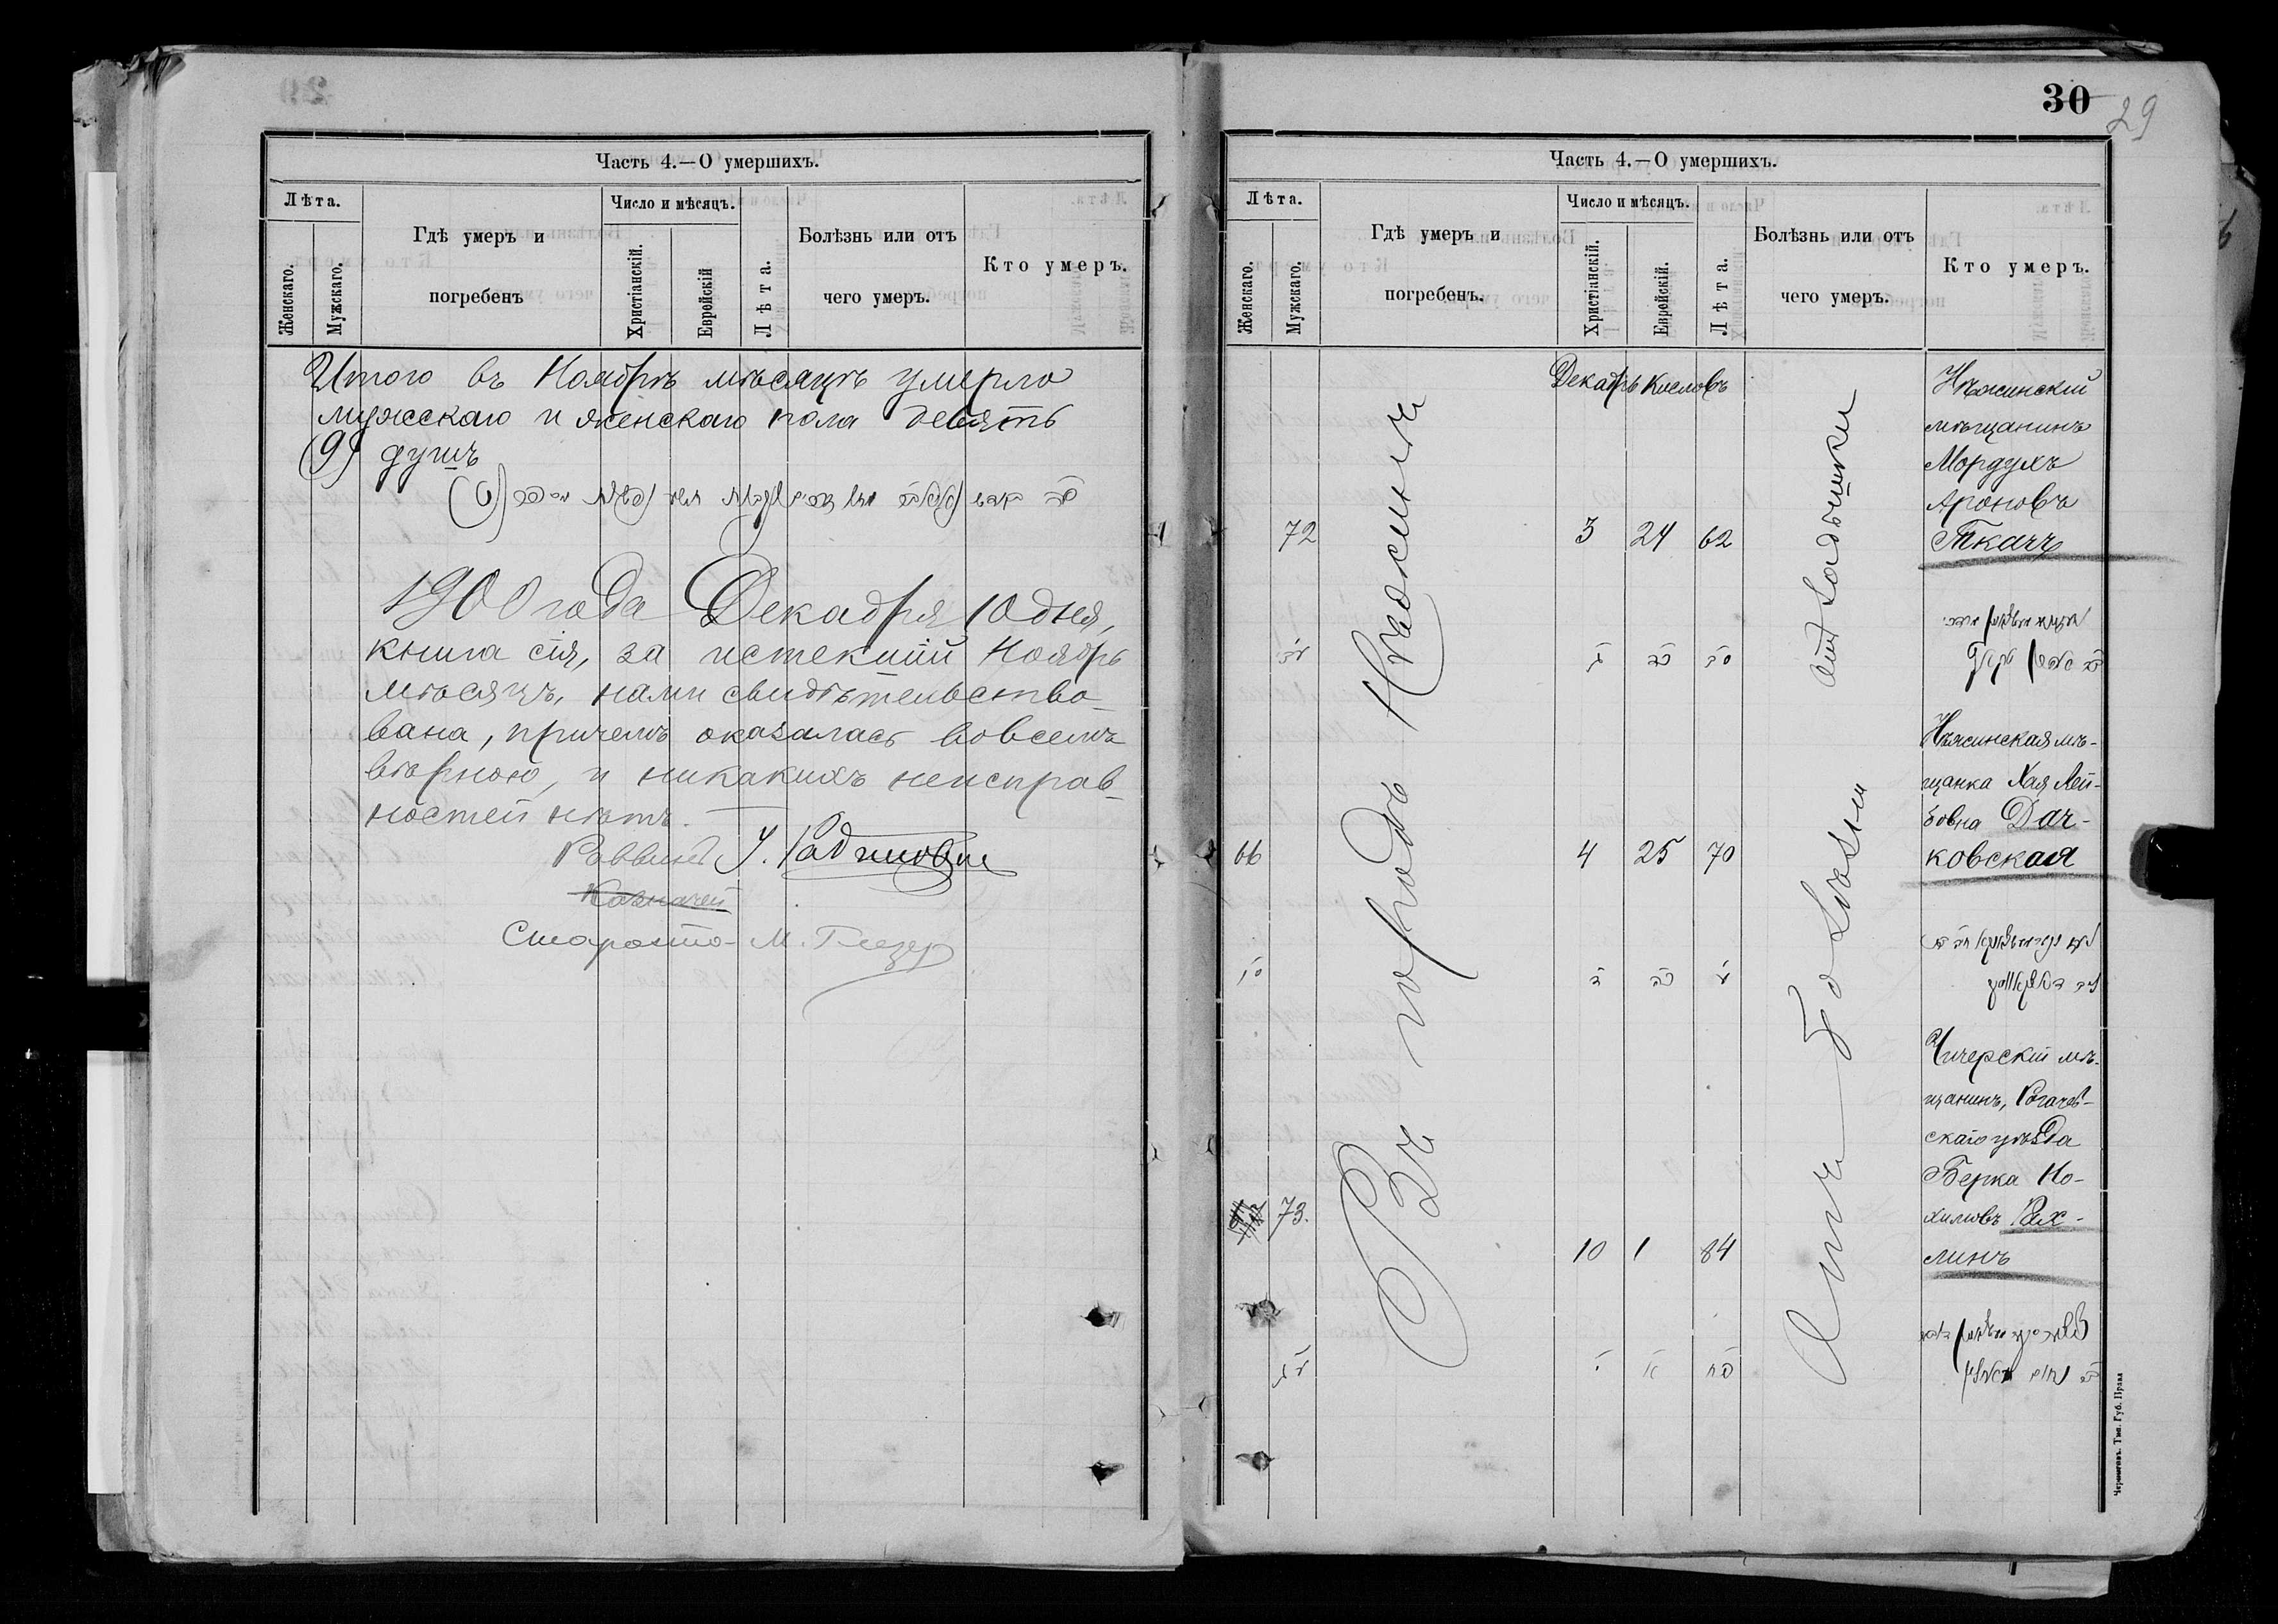 Часть 4.—О умершихъ.
Лѣта.
Женскаго.
Мужскаго.
Гдѣ умеръ и
погребенъ
Число и мѣсяцъ.
Христіанскій.
Еврейскій
Лѣта.
Болѣзнь или отъ
чего умеръ.
Кто умеръ.
Итого въ Ноябрѣ мѣсяцѣ умерло
мужескаго и женскаго пола девять
(9) душъ
1900 года Декабря 10 дня,
книга сія, за истекшій Ноябрь
мѣсяцъ, нами свидѣтельство-
вана, причемъ оказалась вовсемъ
вѣрною, и никакихъ неисправ-
ностей нѣтъ.
Раввинъ
Казначей
Староста М. Глезер
30
29
Часть 4.—О умершихъ.
Лѣта.
Женскаго.
Мужскаго.
Гдѣ умеръ и
погребенъ.
Число и мѣсяцъ.
Христіанскій.
Еврейскій.
Лѣта.
Болѣзнь или отъ
чего умеръ.
Кто умеръ.
Въ городѣ Нѣжинѣ
Декабрь Кислевъ
72
3 24 62
отъ одышки
Нѣжинскій
мѣщанинъ
Мордухъ
Ароновъ
Ткачъ
66
4 25 70
Отъ болѣзни
Нѣжинская мѣ-
щанка Хая Лей-
бовна Дач-
ковская
73.
10 1 84
Чичерскій мѣ-
щанинъ, Рогачев-
скаго уѣзда
Берка Но-
химовъ Рах-
линъ
Черниговъ. Тип. Губ. Правл